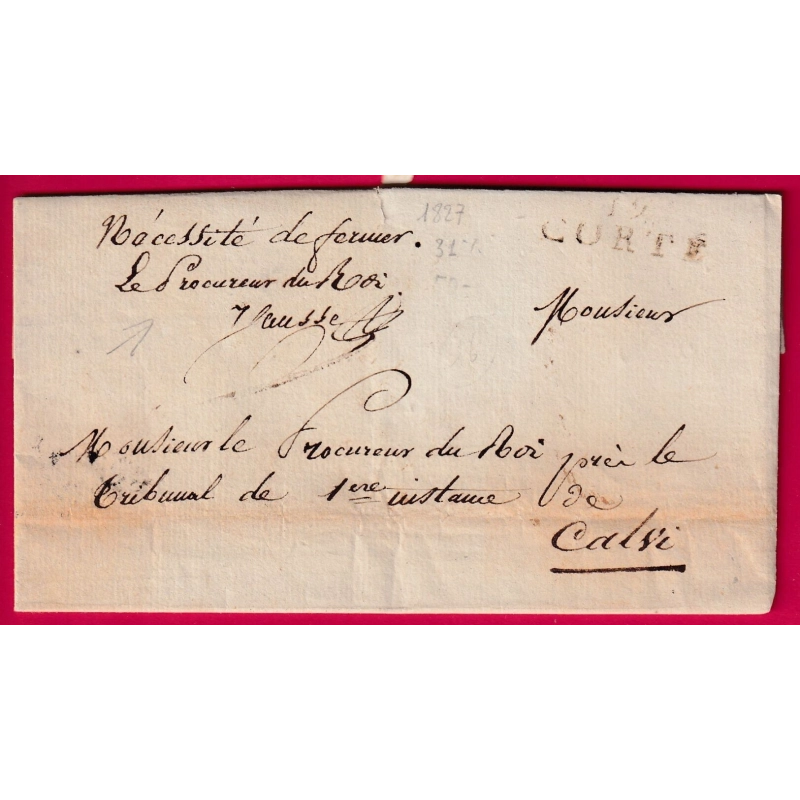 Nécessité de fermer.
Le Procureur du Roi
1827
19
CORTE
Monsieur
Monsieur le Procureur du Roi près le
Tribunal de 1ere instance de
Calvi